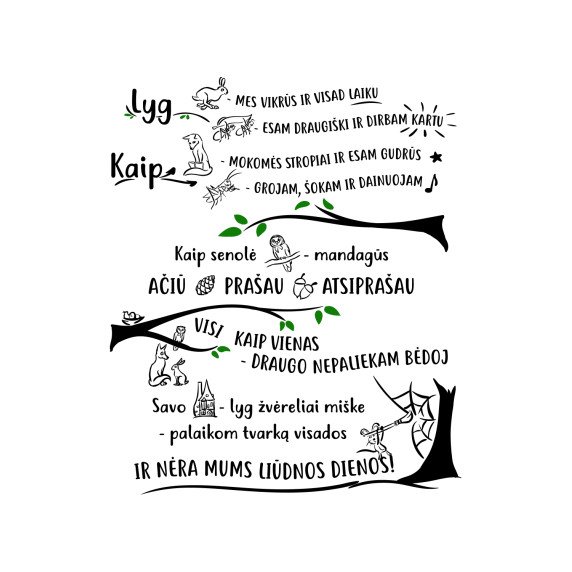 Lyg - MES VIKRŪS IR VISAD LAIKU
- ESAM DRAUGIŠKI IR DIRBAM KARTU
Kaip - MOKOMĖS STROPIAI IR ESAM GUDRŪS
- GROJAM, ŠOKAM IR DAINUOJAM
Kaip senolė - mandagūs
AČIŪ PRAŠAU ATSIPRAŠAU
VISI KAIP VIENAS
- DRAUGO NEPALIEKAM BĖDOJ
Savo - lyg žvėreliai miške
- palaikom tvarką visados
IR NĖRA MUMS LIŪDNOS DIENOS!